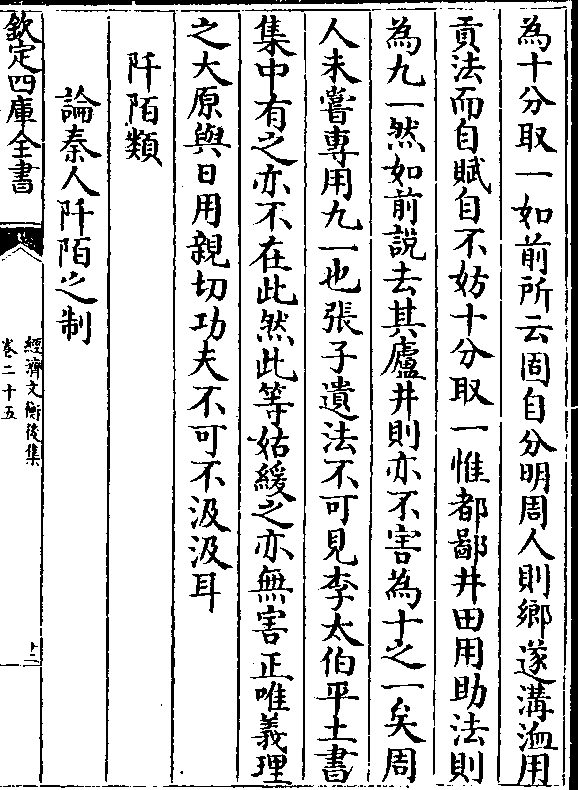 為十分取一如前所云固自分明周人則鄉遂溝洫用
貢法而自賦自不妨十分取一惟都鄙井田用助法則
為九一然如前說去其廬井則亦不害為十之一矣周
人未嘗專用九一也張子遺法不可見李太伯平土書
集中有之亦不在此然此等姑緩之亦無害正唯義理
之大原與日用親切功夫不可不汲汲耳
阡陌類
論秦人阡陌之制
欽定四庫全書
經濟文衡後集
卷二十五
十二